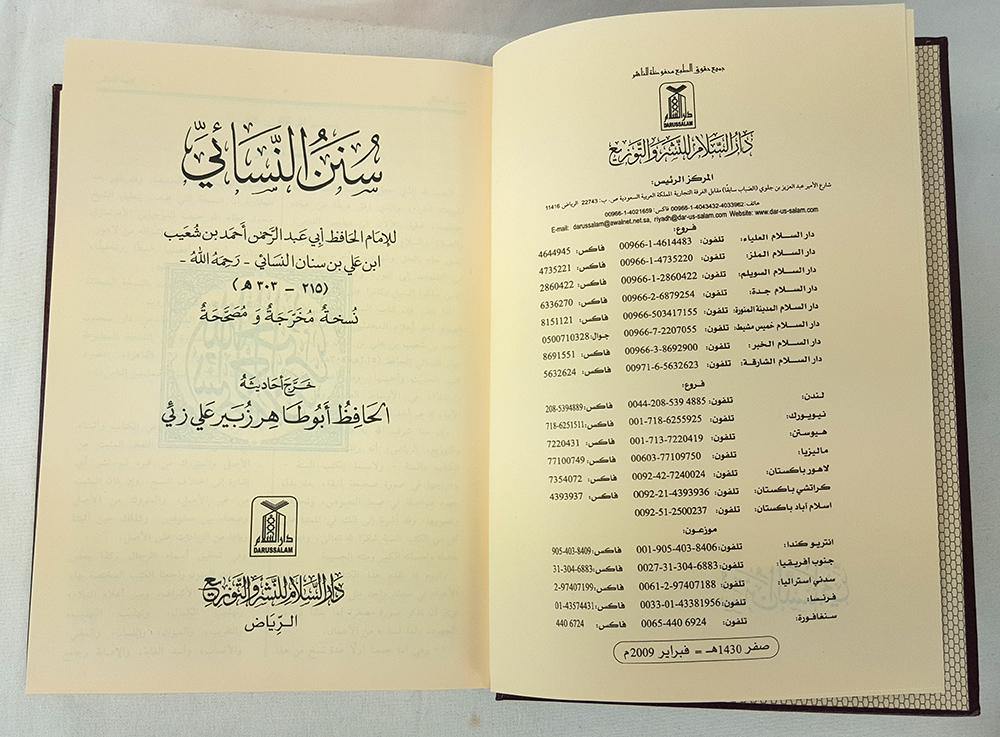 سُنَنُ النَّسَائِيِّ
للإمام الحافظ أبي عبد الرَّحمٰن أحمد بن شُعَيب
ابن علي بن سنان النسائي - رَحِمَهُ اللهُ -
(٢١٥ - ٣٠٣ هـ)
نُسخةٌ مُخَرَّجَةٌ وَ مُصَحَّحَةٌ
خَرَّجَ أحَادِيثَهُ
الحَافِظُ أَبُو طَاهِر زُبَير عَلي زئي
دار السلام
DARUSSALAM
دَارُ السَّلَام لِلنَّشْرِ وَالتَّوْزِيع
الرِّيَاض
جميع حقوق الطبع محفوظة للناشر
دار السلام
DARUSSALAM
دَارُ السَّلَام لِلنَّشْرِ وَالتَّوْزِيع
المركز الرئيس:
شارع الأمير عبد العزيز بن جلوي (الضباب سابقًا) مقابل الغرفة التجارية المملكة العربية السعودية ص. ب: 22743 الرياض 11416
هاتف: 4033962-4043432-1-00966 فاكس: 4021659-1-00966
E-mail: darussalam@awalnet.net.sa, riyadh@dar-us-salam.com Website: www.dar-us-salam.com
فروع:
دار السلام العلياء: تلفون: 00966-1-4614483 فاكس: 4644945
دار السلام الملز: تلفون: 00966-1-4735220 فاكس: 4735221
دار السلام السويلم: تلفون: 00966-1-2860422 فاكس: 2860422
دار السلام جدة: تلفون: 00966-2-6879254 فاكس: 6336270
دار السلام المدينة المنورة: تلفون: 00966-503417155 فاكس: 8151121
دار السلام خميس مشيط: تلفون: 00966-7-2207055 جوال: 0500710328
دار السلام الخبر: تلفون: 00966-3-8692900 فاكس: 8691551
دار السلام الشارقة: تلفون: 00971-6-5632623 فاكس: 5632624
فروع:
لندن: تلفون: 0044-208-539 4885 فاكس: 208-5394889
نيويورك: تلفون: 001-718-6255925 فاكس: 718-6251511
هيوستن: تلفون: 001-713-7220419 فاكس: 7220431
ماليزيا: تلفون: 00603-77109750 فاكس: 77100749
لاهور باكستان: تلفون: 0092-42-7240024 فاكس: 7354072
كراتشي باكستان: تلفون: 0092-21-4393936 فاكس: 4393937
اسلام آباد باكستان: تلفون: 0092-51-2500237
موزعون:
انتريو كندا: تلفون: 001-905-403-8406 فاكس: 905-403-8409
جنوب أفريقيا: تلفون: 0027-31-304-6883 فاكس: 31-304-6883
سدني استراليا: تلفون: 0061-2-97407188 فاكس: 2-97407199
فرنسا: تلفون: 0033-01-43381956 فاكس: 01-43574431
سنغافورة: تلفون: 0065-440 6924 فاكس: 440 6924
صفر 1430هـ = فبراير 2009م